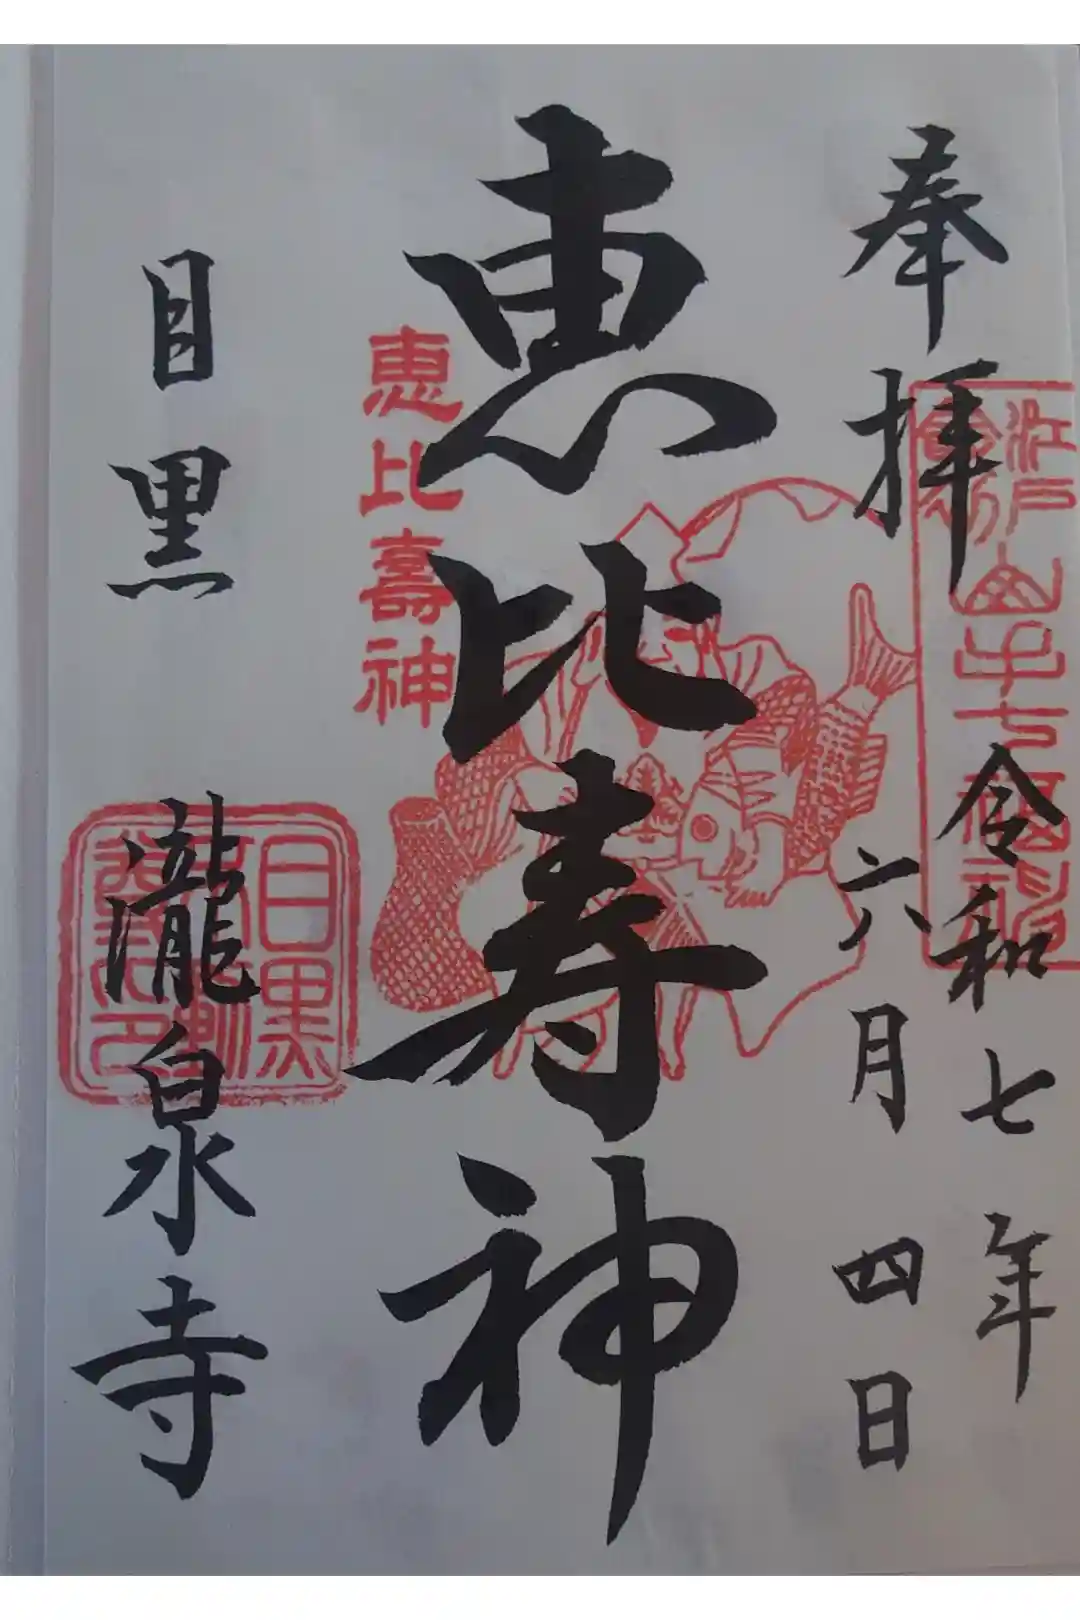 奉拝
令和七年
六月四日
恵比寿神
恵比壽神
目黒 瀧泉寺
江戸
山手七福神
目黒